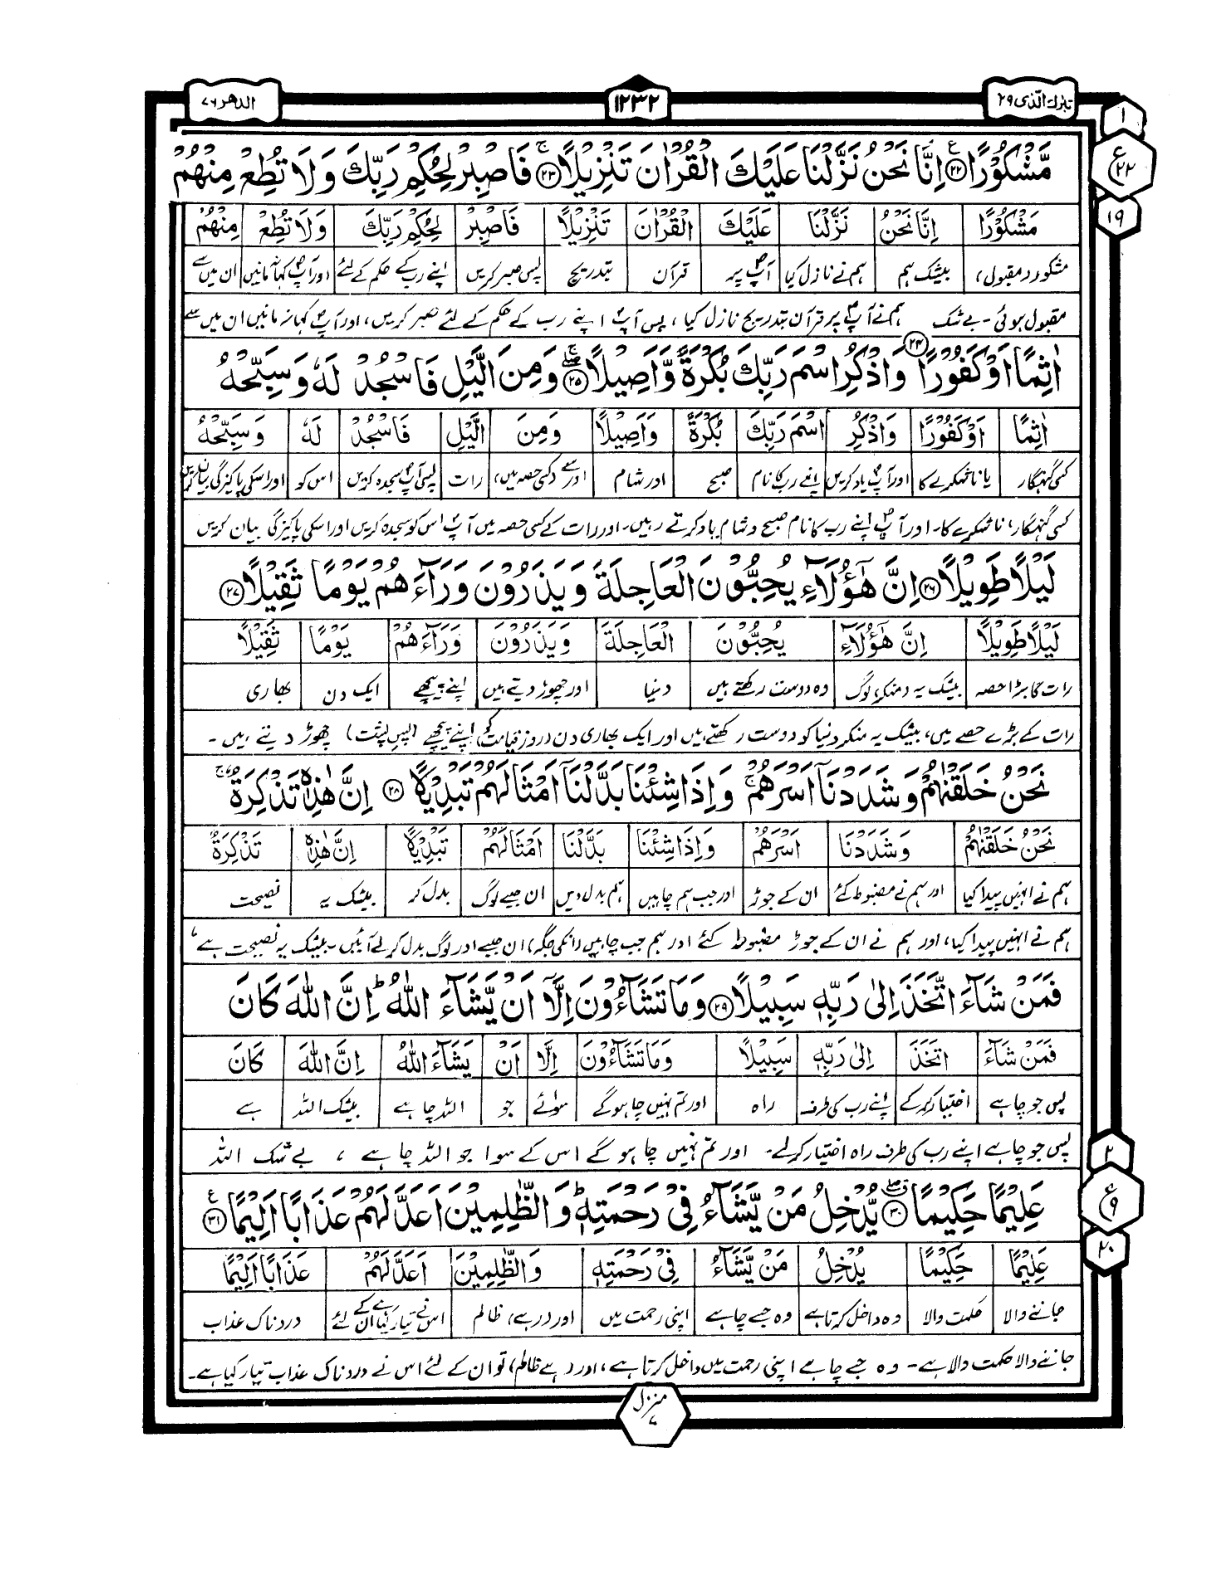 تبٰرك الذی ۲۹
۱۲۳۲
الدهر ۷۶
۱
ع
۲۲
۱۹
مَّشْكُوْرًا ۲۲ اِنَّا نَحْنُ نَزَّلْنَا عَلَيْكَ الْقُرْاٰنَ تَنْزِيْلًا ۲۳ فَاصْبِرْ لِحُكْمِ رَبِّكَ وَلَا تُطِعْ مِنْهُمْ
مَشْكُوْرًا اِنَّا نَحْنُ نَزَّلْنَا عَلَيْكَ الْقُرْاٰنَ تَنْزِيْلًا فَاصْبِرْ لِحُكْمِ رَبِّكَ وَلَا تُطِعْ مِنْهُمْ
مشکور (مقبول) بیشک ہم ہم نے نازل کیا آپؐ پر قرآن بتدریج پس صبر کریں اپنے رب کے حکم کے لئے اور آپؐ کہا نہ مانیں ان میں سے
مقبول ہوئی۔ بے شک ہم نے آپؐ پر قرآن بتدریج نازل کیا، پس آپؐ اپنے رب کے حکم کے لئے صبر کریں، اور آپؐ کہا نہ مانیں ان میں سے
اٰثِمًا اَوْ كَفُوْرًا ۲۴ وَاذْكُرِ اسْمَ رَبِّكَ بُكْرَةً وَّاَصِيْلًا ۲۵ وَمِنَ الَّيْلِ فَاسْجُدْ لَهٗ وَسَبِّحْهُ
اٰثِمًا اَوْ كَفُوْرًا وَاذْكُرِ اسْمَ رَبِّكَ بُكْرَةً وَاَصِيْلًا وَمِنَ الَّيْلِ فَاسْجُدْ لَهٗ وَسَبِّحْهُ
کسی گنہگار یا ناشکرے کا اور آپؐ یاد کریں اپنے رب کا نام صبح اور شام اور سے (کسی حصہ میں) رات پس آپؐ سجدہ کریں اس کو اور اسکی پاکیزگی بیان کریں
کسی گنہگار، ناشکرے کا۔ اور آپؐ اپنے رب کا نام صبح و شام یاد کرتے رہیں۔ اور رات کے کسی حصہ میں آپؐ اس کو سجدہ کریں اور اسکی پاکیزگی بیان کریں
لَيْلًا طَوِيْلًا ۲۶ اِنَّ هٰٓؤُلَآءِ يُحِبُّوْنَ الْعَاجِلَةَ وَيَذَرُوْنَ وَرَآءَهُمْ يَوْمًا ثَقِيْلًا ۲۷
لَيْلًا طَوِيْلًا اِنَّ هٰٓؤُلَآءِ يُحِبُّوْنَ الْعَاجِلَةَ وَيَذَرُوْنَ وَرَآءَهُمْ يَوْمًا ثَقِيْلًا
رات کا بڑا حصہ بیشک یہ (منکر) لوگ وہ دوست رکھتے ہیں دنیا اور چھوڑ دیتے ہیں اپنے پیچھے ایک دن بھاری
رات کے بڑے حصے میں، بیشک یہ منکر دنیا کو دوست رکھتے ہیں اور ایک بھاری دن (روز قیامت) کو اپنے پیچھے (پس پشت) چھوڑ دیتے ہیں۔
نَحْنُ خَلَقْنٰهُمْ وَشَدَدْنَآ اَسْرَهُمْ ۚ وَاِذَا شِئْنَا بَدَّلْنَآ اَمْثَالَهُمْ تَبْدِيْلًا ۲۸ اِنَّ هٰذِهٖ تَذْكِرَةٌ ۚ
نَحْنُ خَلَقْنٰهُمْ وَشَدَدْنَا اَسْرَهُمْ وَاِذَا شِئْنَا بَدَّلْنَا اَمْثَالَهُمْ تَبْدِيْلًا اِنَّ هٰذِهٖ تَذْكِرَةٌ
ہم نے انہیں پیدا کیا اور ہم نے مضبوط کئے ان کے جوڑ اور جب ہم چاہیں ہم بدل دیں ان جیسے لوگ بدل کر بیشک یہ نصیحت
ہم نے انہیں پیدا کیا، اور ہم نے ان کے جوڑ مضبوط کئے اور ہم جب چاہیں (انکی جگہ) ان جیسے اور لوگ بدل کر لے آئیں۔ بیشک یہ نصیحت ہے،
فَمَنْ شَآءَ اتَّخَذَ اِلٰى رَبِّهٖ سَبِيْلًا ۲۹ وَمَا تَشَآءُوْنَ اِلَّآ اَنْ يَّشَآءَ اللّٰهُ ؕ اِنَّ اللّٰهَ كَانَ
فَمَنْ شَآءَ اتَّخَذَ اِلٰى رَبِّهٖ سَبِيْلًا وَمَا تَشَآءُوْنَ اِلَّا اَنْ يَشَآءَ اللّٰهُ اِنَّ اللّٰهَ كَانَ
پس جو چاہے اختیار کر لے اپنے رب کی طرف راہ اور تم نہیں چاہو گے سوائے جو اللہ چاہے بیشک اللہ ہے
پس جو چاہے اپنے رب کی طرف راہ اختیار کر لے۔ اور تم نہیں چاہو گے اس کے سوا جو اللہ چاہے، بے شک اللہ
عَلِيْمًا حَكِيْمًا ۳۰ يُّدْخِلُ مَنْ يَّشَآءُ فِيْ رَحْمَتِهٖ ؕ وَالظّٰلِمِيْنَ اَعَدَّ لَهُمْ عَذَابًا اَلِيْمًا ۳۱
۲
ع
۹
۲۰
عَلِيْمًا حَكِيْمًا يُدْخِلُ مَنْ يَّشَآءُ فِيْ رَحْمَتِهٖ وَالظّٰلِمِيْنَ اَعَدَّ لَهُمْ عَذَابًا اَلِيْمًا
جاننے والا حکمت والا وہ داخل کرتا ہے وہ جسے چاہے اپنی رحمت میں اور (رہے) ظالم اس نے تیار کیا ہے ان کے لئے دردناک عذاب
جاننے والا حکمت والا ہے۔ وہ جسے چاہے اپنی رحمت میں داخل کرتا ہے، اور (رہے ظالم) تو ان کے لئے اس نے دردناک عذاب تیار کیا ہے۔
منزل ۷